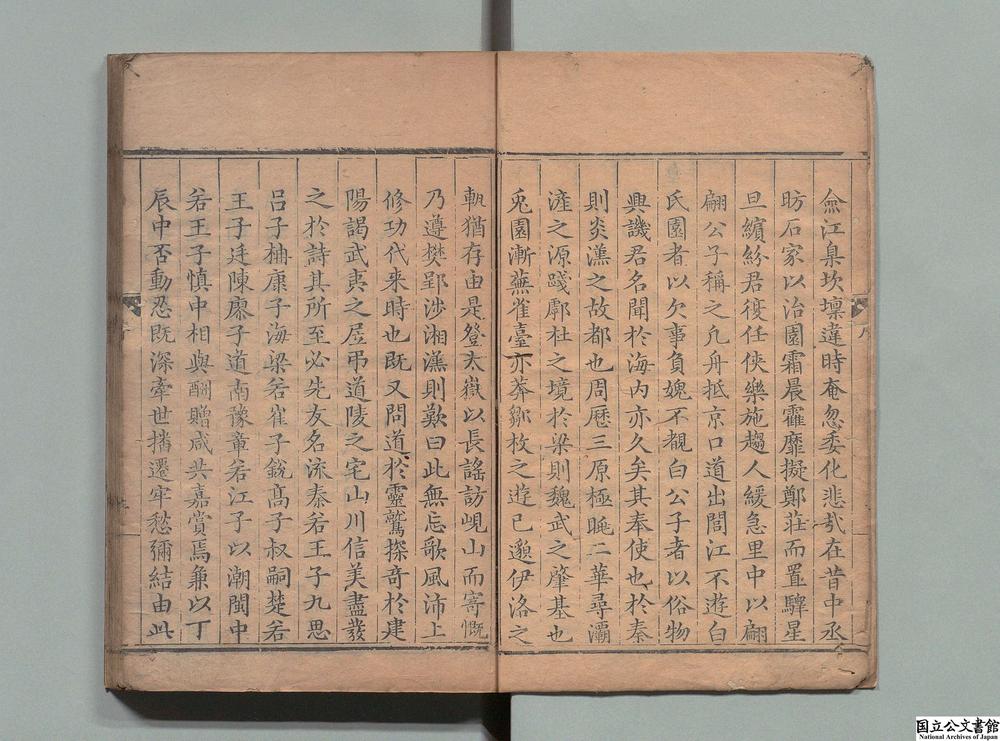 僉江臯坎壈違時奄忽委化悲哉在昔中丞
昉石家以治園霜晨霍靡擬鄭莊而置驛星
旦繽紛君復任俠樂施趨人緩急里中以翩
翩公子稱之凢舟抵京口道出閶江不遊白
氏園者以欠事負媿不覯白公子者以俗物
興譏君名聞於海内亦久矣其奉使也於秦
則炎漢之故都也周歷三原極睇二華尋灞
滻之源踐鄠杜之境於梁則魏武之肇基也
兎園漸蕪雀臺亦莽鄒枚之遊已邈伊洛之
軌猶存由是登太嶽以長謠訪峴山而寄慨
乃遵樊郢涉湘漢則歎曰此無忘歌風沛上
修功代来時也既又問道於靈鷲探奇於建
陽謁武夷之居弔道陵之宅山川信美盡發
之於詩其所至必先友名流秦若王子九思
吕子柟康子海梁若崔子銑髙子叔嗣楚若
王子廷陳廖子道南豫章若江子以潮閩中
若王子慎中相與酬贈咸共嘉賞焉兼以丁
辰中否動忍既深牽世播遷牢愁彌結由此
国立公文書館
National Archives of Japan